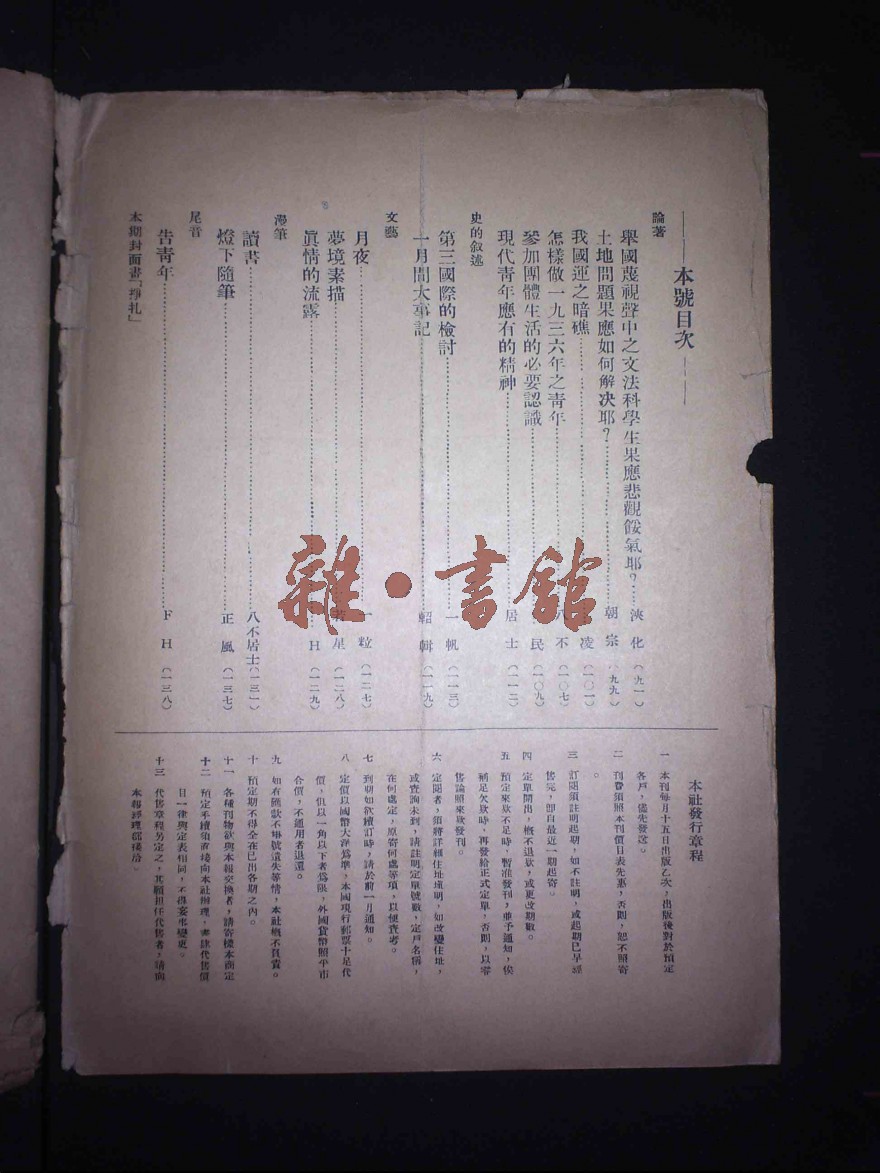 本號目次
論著
舉國蔑視聲中之文法科學生果應悲觀餒氣耶?……浹化(九一)
土地問題果應如何解决耶?……朝宗(九九)
我國運之暗礁……凌(一〇一)
怎樣做一九三六年之青年……八不(一〇七)
參加團體生活的必要認識……民(一〇九)
現代青年應有的精神……居士(一一二)
史的叙述
第三國際的檢討……一帆(一一三)
一月間大事記……輯(一一九)
文藝
月夜……一粒(一二七)
夢境素描……星(一二八)
眞情的流露……H(一二九)
漫筆
讀書……八不居士(一三一)
燈下隨筆……正風(一三七)
尾音
告靑年……F H(一三八)
本期封面畫「掙扎」
雜·書館
本社發行章程
一 本刊每月十五日出版乙次,出版後對於預定
各戶,儘先發送。
二 刊費須照本刊價目表先惠,否則,恕不照寄
。
三 訂閱須註明起期,如不註明,或起期已早經
售完,即自最近一期起寄。
四 定單開出,概不退款,或更改期數。
五 預定來款不足時,暫准發刊,並予通知,俟
補足欠款時,再發給正式定單,否則,以零
售論照來款發刊。
六 定閱者,須將詳細住址塡明,如改變住址,
或查詢未到,請註明定單號數,定戶名稱,
在何處定,原寄何處等項,以便查考。
七 到期如欲續訂時,請於前一月通知。
八 定價以國幣大洋爲準,本國現行郵票十足代
價,但以一角以下者爲限,外國貨幣照平市
合價,不通用者退還。
九 如有匯款不掛號遺失等情,本社槪不負責。
十 預定期不得全在已出各期之內。
十一 各種刊物欲與本報交換者,請寄樣本商定
十二 預定手續須直接向本社辦理,書肆代售價
目一律與定表相同,不得妄事變更。
十三 代售章程另定之,其願担任代售者,請向
本報經理部接洽。